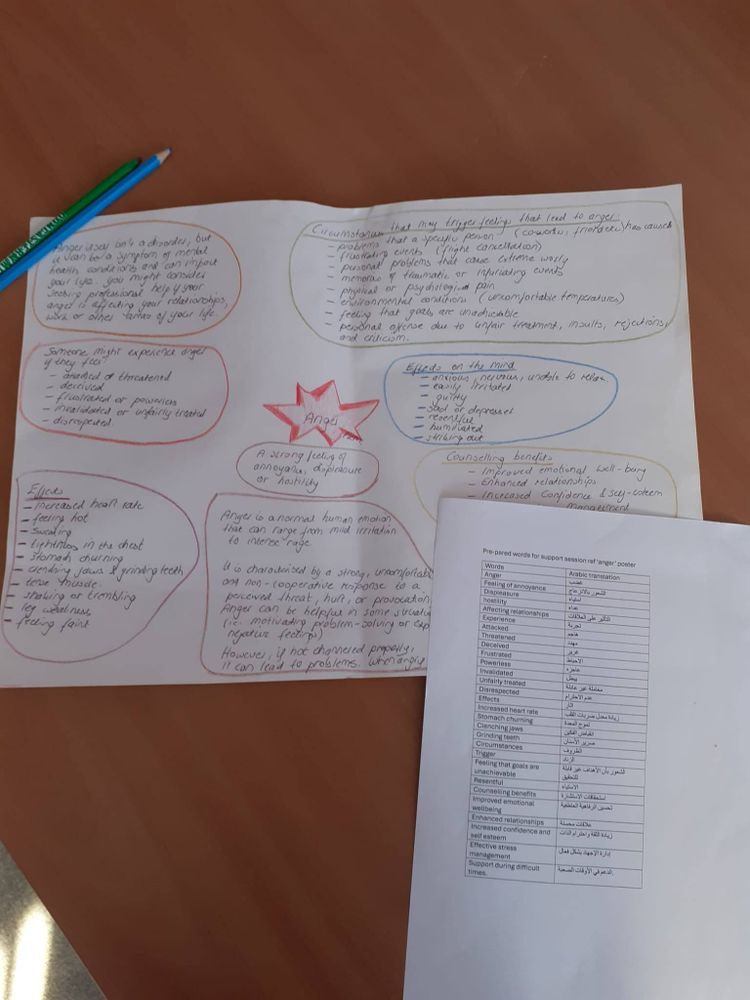 Anger itself isn't a disorder, but
it can be a symptom of mental
health conditions and can impact
your life. you might consider
seeking professional help if your
anger is affecting your relationships,
work or other areas of your life.
Circumstances that may trigger feelings that lead to anger:
- problems that a specific person (coworker, friend etc) has caused
- frustrating events (flight cancellation)
- personal problems that cause extreme worry
- memories of traumatic or infuriating events
- physical or psychological pain
- environmental conditions (uncomfortable temperatures)
- feeling that goals are unachievable
- personal offense due to unfair treatment, insults, rejections,
and criticism.
Someone might experience anger
if they feel:
- attacked or threatened
- deceived
- frustrated or powerless
- invalidated or unfairly treated
- disrespected.
Anger
A strong feeling of
annoyance, displeasure
or hostility
Effects on the mind
- anxious, nervous, unable to relax.
- easily irritated
- guilty
- sad or depressed
- resentful
- humiliated
- striking out
Counselling benefits
- Improved emotional well-being
- Enhanced relationships
- Increased Confidence & self-esteem
management
Effects
- increased heart rate
- feeling hot
- sweating
- tightness in the chest
- stomach churning
- clenching jaws & grinding teeth
- tense muscle.
- shaking or trembling
- leg weakness
- feeling faint
Anger is a normal human emotion
that can range from mild irritation
to intense rage
It is characterised by a strong, uncomfortable
and non-cooperative response to a
perceived threat, hurt, or provocation.
Anger can be helpful in some situations
(i.e. motivating problem-solving or exp
negative feelings)
However, if not channeled properly,
it can lead to problems. when angry
Pre-pared words for support session ref 'anger' poster
Words Arabic translation
Anger غضب
Feeling of annoyance الشعور بالانزعاج
Displeasure استياء
hostility عداء
Affecting relationships التأثير على العلاقات
Experience تجربة
Attacked هاجم
Threatened مهدد
Deceived غرير
Frustrated الاحباط
Powerless عاجزه
Invalidated يبطل
Unfairly treated معاملة غير عادلة
Disrespected عدم الاحترام
Effects اثار
Increased heart rate زيادة معدل ضربات القلب
Stomach churning تموج المعدة
Clenching jaws انقباض الفكين
Grinding teeth صرير الأسنان
Circumstances الظروف
Trigger الزناد
Feeling that goals are الشعور بأن الأهداف غير قابلة
unachievable للتحقيق
Resentful الاستياء
Counselling benefits استحقاقات الاستشارة
Improved emotional تحسين الرفاهية العاطفية
wellbeing
Enhanced relationships علاقات محسنة
Increased confidence and زيادة الثقة واحترام الذات
self esteem
Effective stress إدارة الإجهاد بشكل فعال
management
Support during difficult الدعم في الأوقات الصعبة.
times.